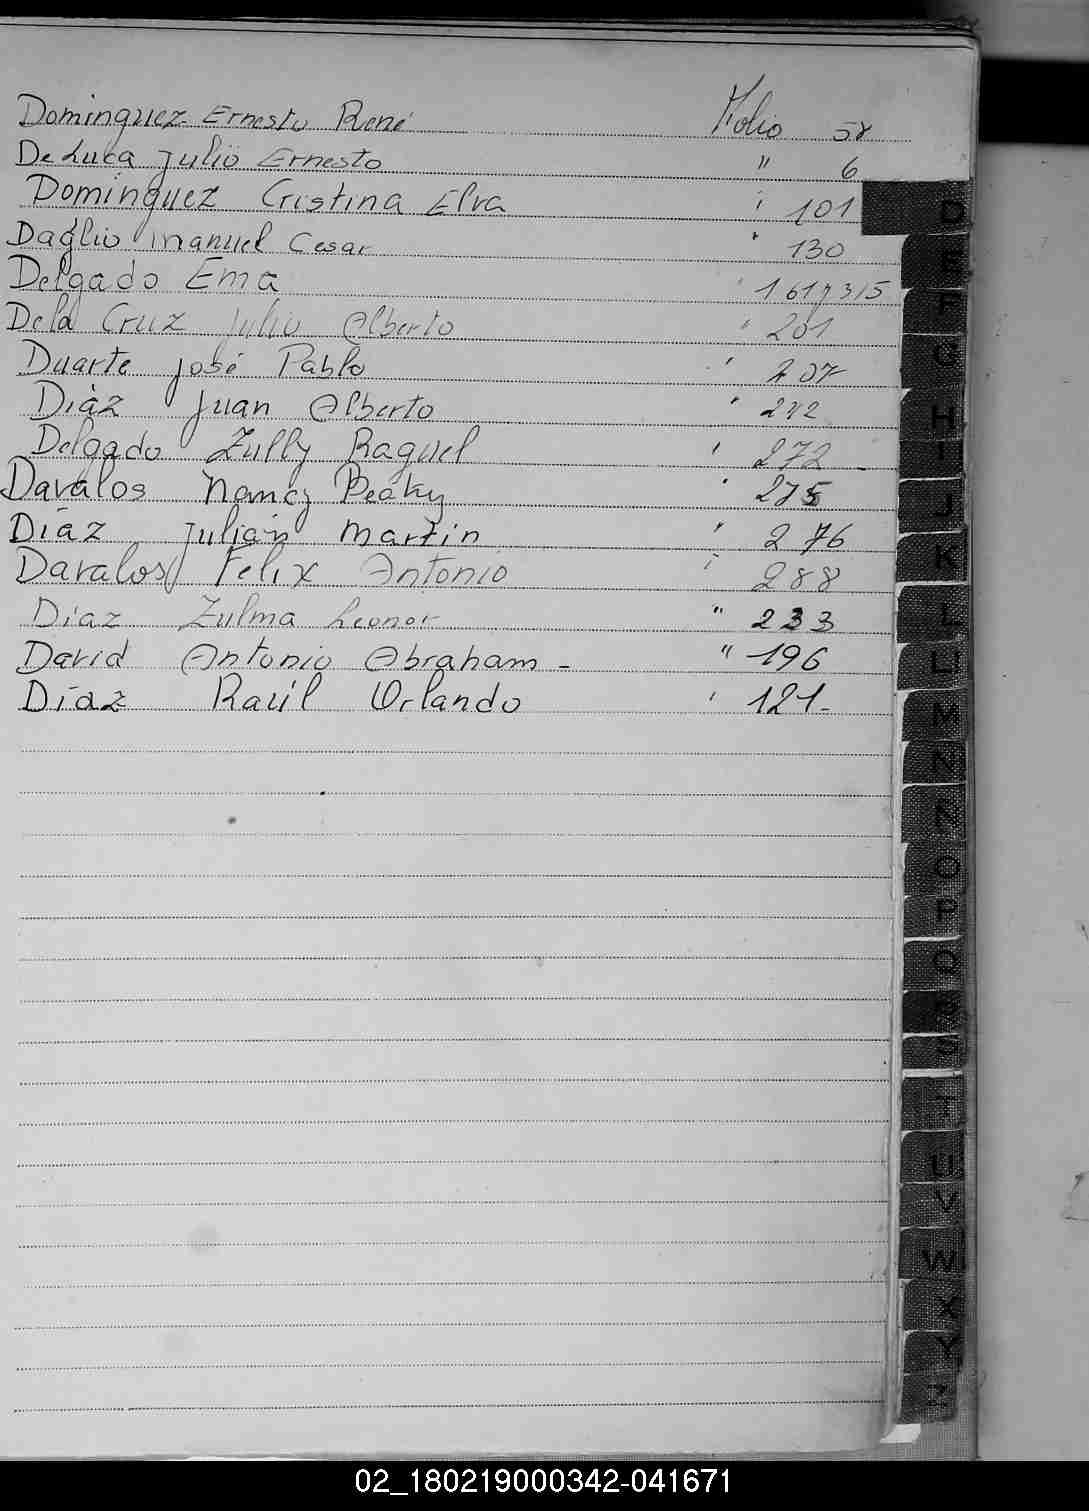 Dominguez Ernesto René Folio 58
De Luca Julio Ernesto " 6
Dominguez Cristina Elva " 101
Daglio Manuel Cesar " 130
Delgado Ema "
De la Cruz Julio Alberto " 201
Duarte José Pablo " 207
Diáz Juan Alberto " 212
Delgado Zully Raquel " 272
Davalos Nancy " 275
Díaz Julian Martin " 276
Davalos Felix Antonio " 288
Diaz Zulma Leonor " 233
David Antonio Abraham - " 196
Díaz Raúl Orlando " 121-
D
E
F
G
H
I
J
K
L
LL
M
N
Ñ
O
P
Q
R
S
T
U
V
W
X
Y
Z
02_180219000342-041671